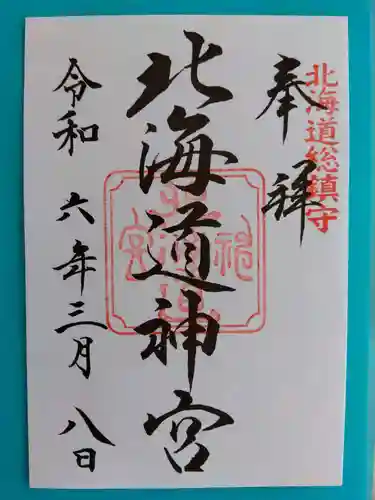 北海道総鎮守
奉拝
北海道神宮
令和六年三月八日